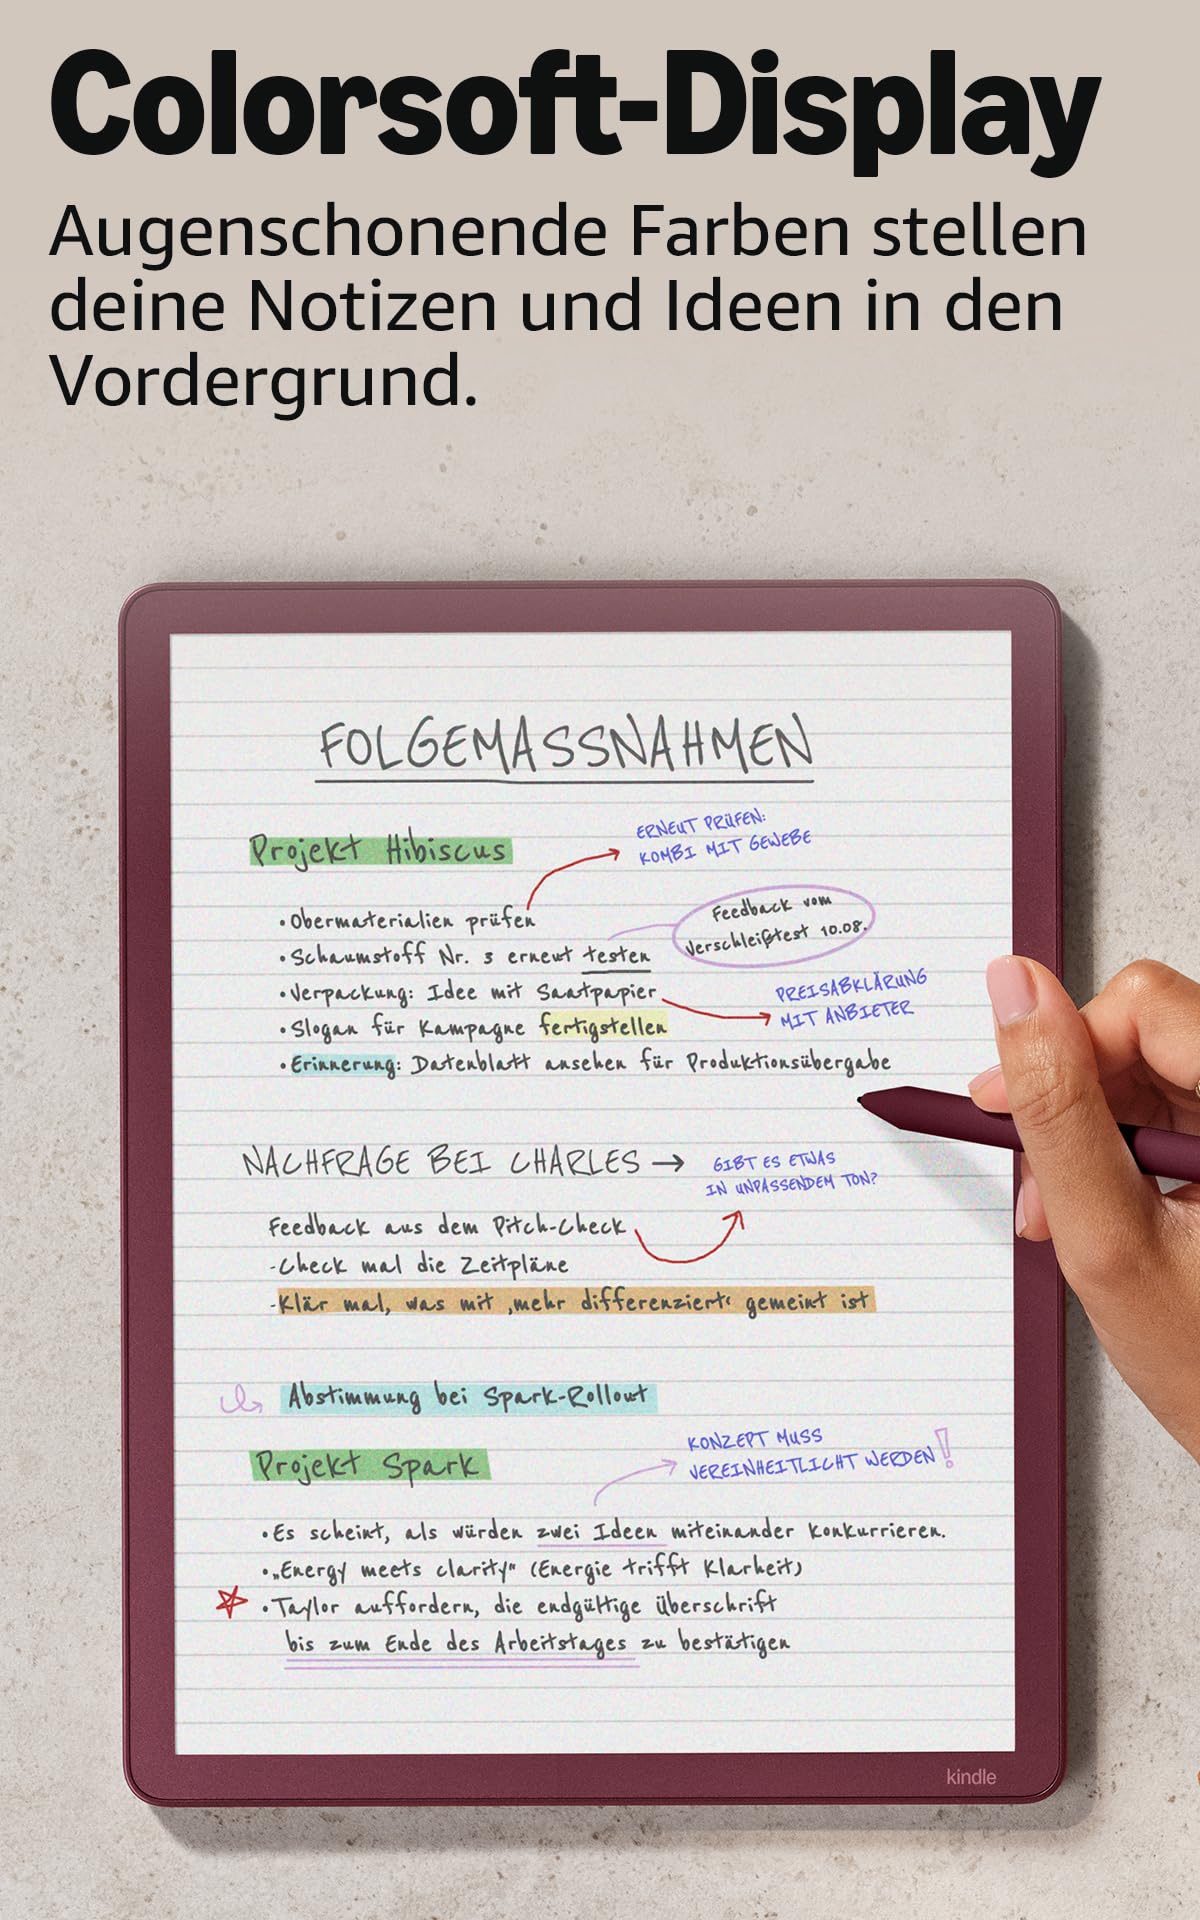 Colorsoft-Display
Augenschonende Farben stellen
deine Notizen und Ideen in den
Vordergrund.
FOLGEMASSNAHMEN
Projekt Hibiscus
ERNEUT PRÜFEN:
KOMBI MIT GEWEBE
• Obermaterialien prüfen
Feedback vom
Verschleißtest 10.08.
• Schaumstoff Nr. 3 erneut testen
• Verpackung: Idee mit Saatpapier
PREISABKLÄRUNG
MIT ANBIETER
• Slogan für Kampagne fertigstellen
• Erinnerung: Datenblatt ansehen für Produktionsübergabe
NACHFRAGE BEI CHARLES →
GIBT ES ETWAS
IN UNPASSENDEM TON?
Feedback aus dem Pitch-Check
-Check mal die Zeitpläne
-Klär mal, was mit ‚mehr differenziert‘ gemeint ist
Abstimmung bei Spark-Rollout
Projekt Spark
KONZEPT MUSS
VEREINHEITLICHT WERDEN!
• Es scheint, als würden zwei Ideen miteinander konkurrieren.
• „Energy meets clarity“ (Energie trifft Klarheit)
• Taylor auffordern, die endgültige Überschrift
bis zum Ende des Arbeitstages zu bestätigen
kindle